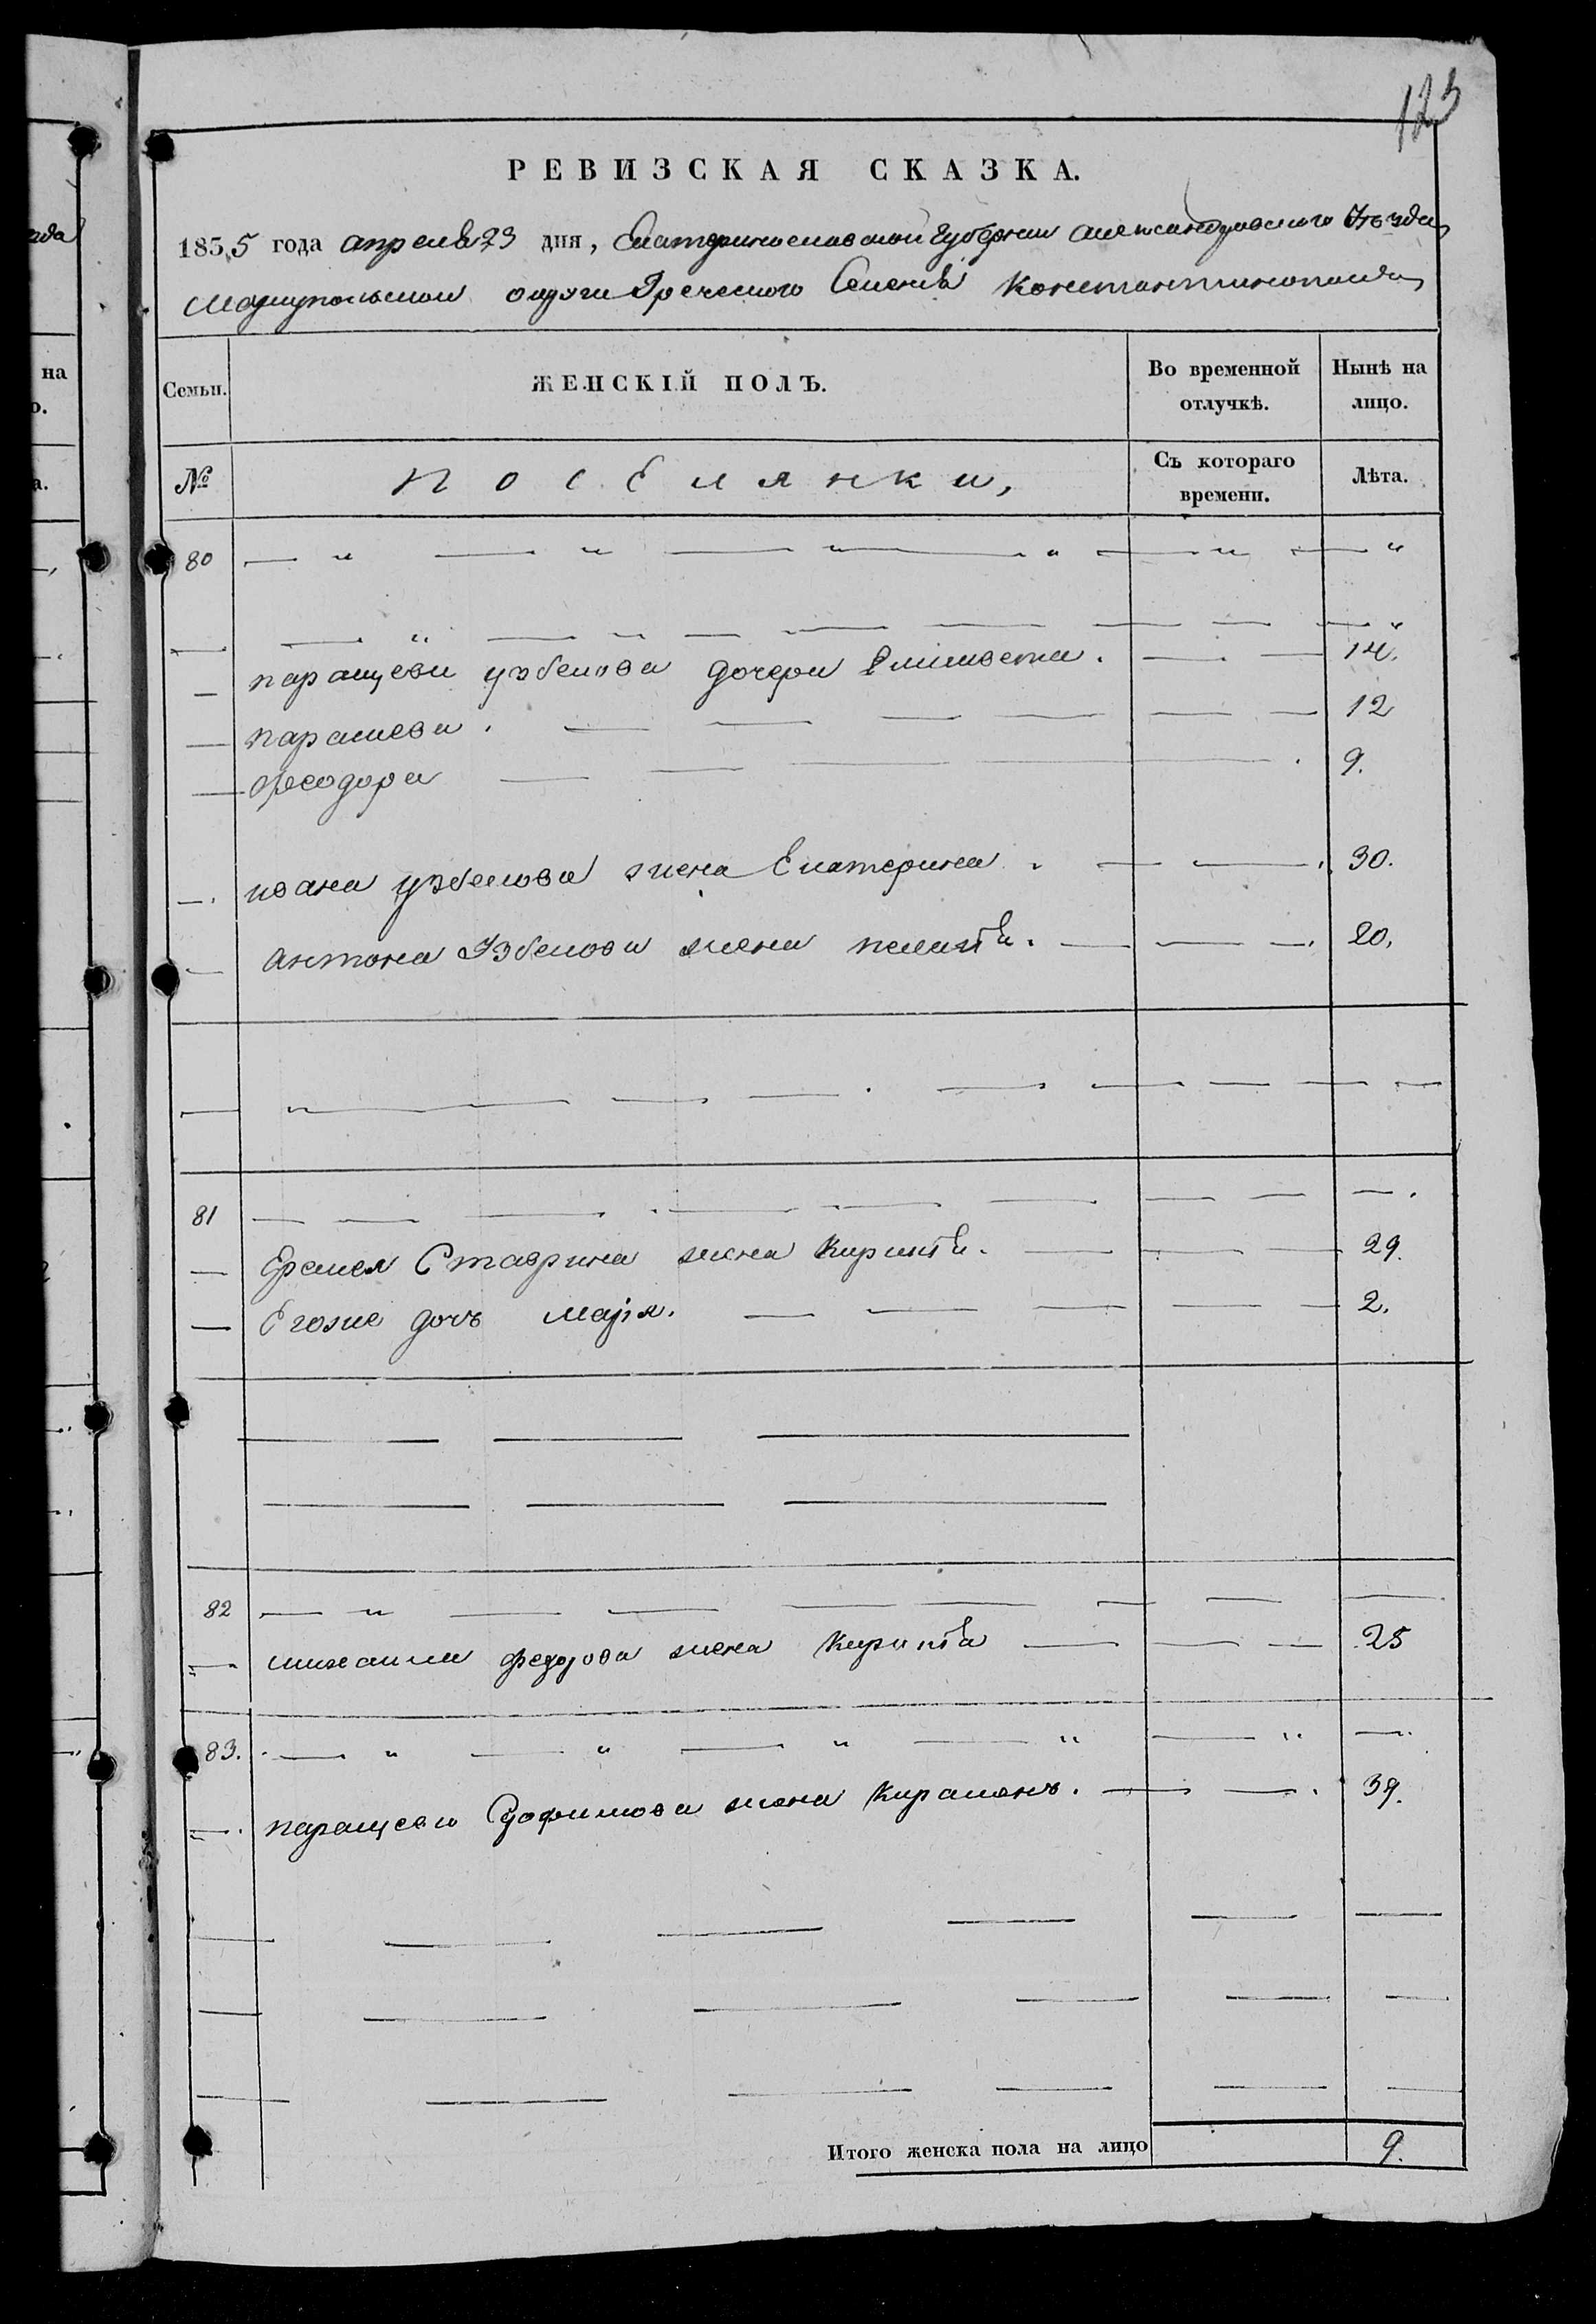 123
РЕВИЗСКАЯ СКАЗКА.
1855 года апреля 23 дня, Екатеринославской Губернии Александровского Уѣзда
Мариупольской округи Греческого Селенія Константинополя
Семьи. ЖЕНСКІЙ ПОЛЪ. Во временной отлучкѣ. Нынѣ на лицо.
№ Поселянки, Съ котораго времени. Лѣта.
80
паращева узбекова дочери Елисавета. 14.
парасиева. 12
феодора 9.
ивана узбекова жена Екатерина. 30.
антона Узбекова жена пелагѣа. 20.
81
Ерамея Ставрина жена Кирикіа. 29.
Егоже дочъ марія. 2.
82
михаила федорова жена Кирикіа 25
83.
паращева жена 39.
Итого женска пола на лицо 9.